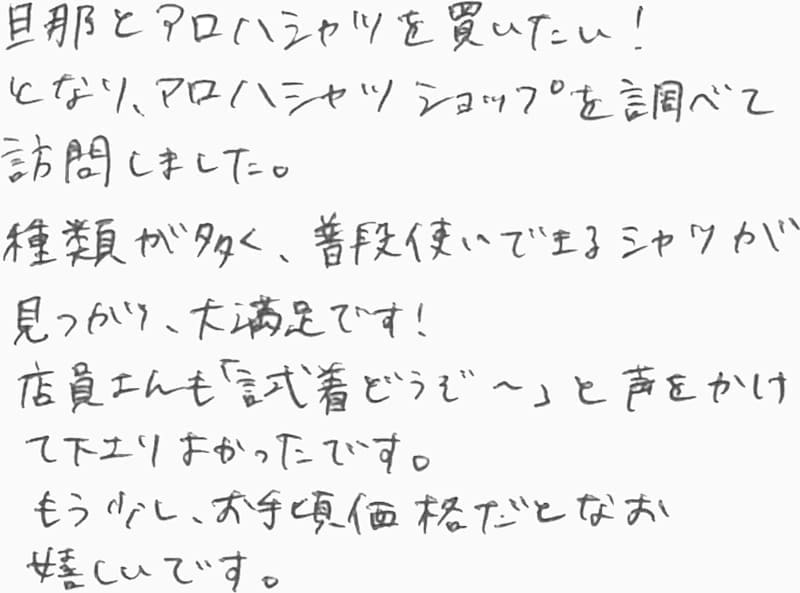 旦那とアロハシャツを買いたい!
となり、アロハシャツショップを調べて
訪問しました。
種類が多く、普段使いできるシャツが
見つかり、大満足です!
店員さんも「試着どうぞ〜」と声をかけ
て下さりよかったです。
もう少し、お手頃価格だとなお
嬉しいです。